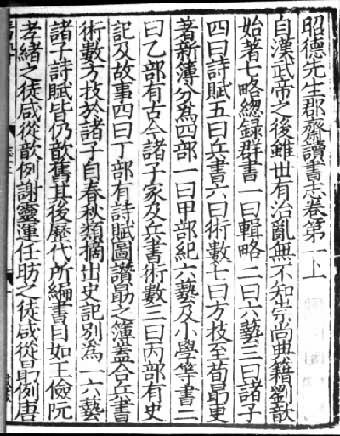 昭德先生郡齋讀書志卷第一上
自漢武帝之後雖世有治亂無不知崇尚典籍劉歆
始著七略緫錄群書一曰輯略二曰六藝三曰諸子
四曰詩賦五曰兵書六曰術數七曰方技至荀勗更
著新簿分爲四部一曰甲部紀六藝及小學等書二
曰乙部有古今諸子家及兵書術數三曰丙部有史
記及故事四曰丁部有詩賦圖讚勗之簿蓋合兵書
術數方技於諸子自春秋類摘出史記別爲一六藝
諸子詩賦皆仍歆舊其後歷代所編書目如王儉阮
孝緒之徒咸從歆例謝靈運任昉之徒咸從勗例唐